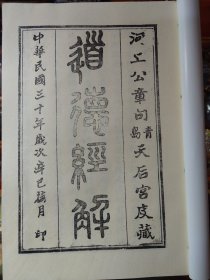 河上公章句青島天后宮皮藏
道德經解
中華民國三十年歲次辛巳梅月印